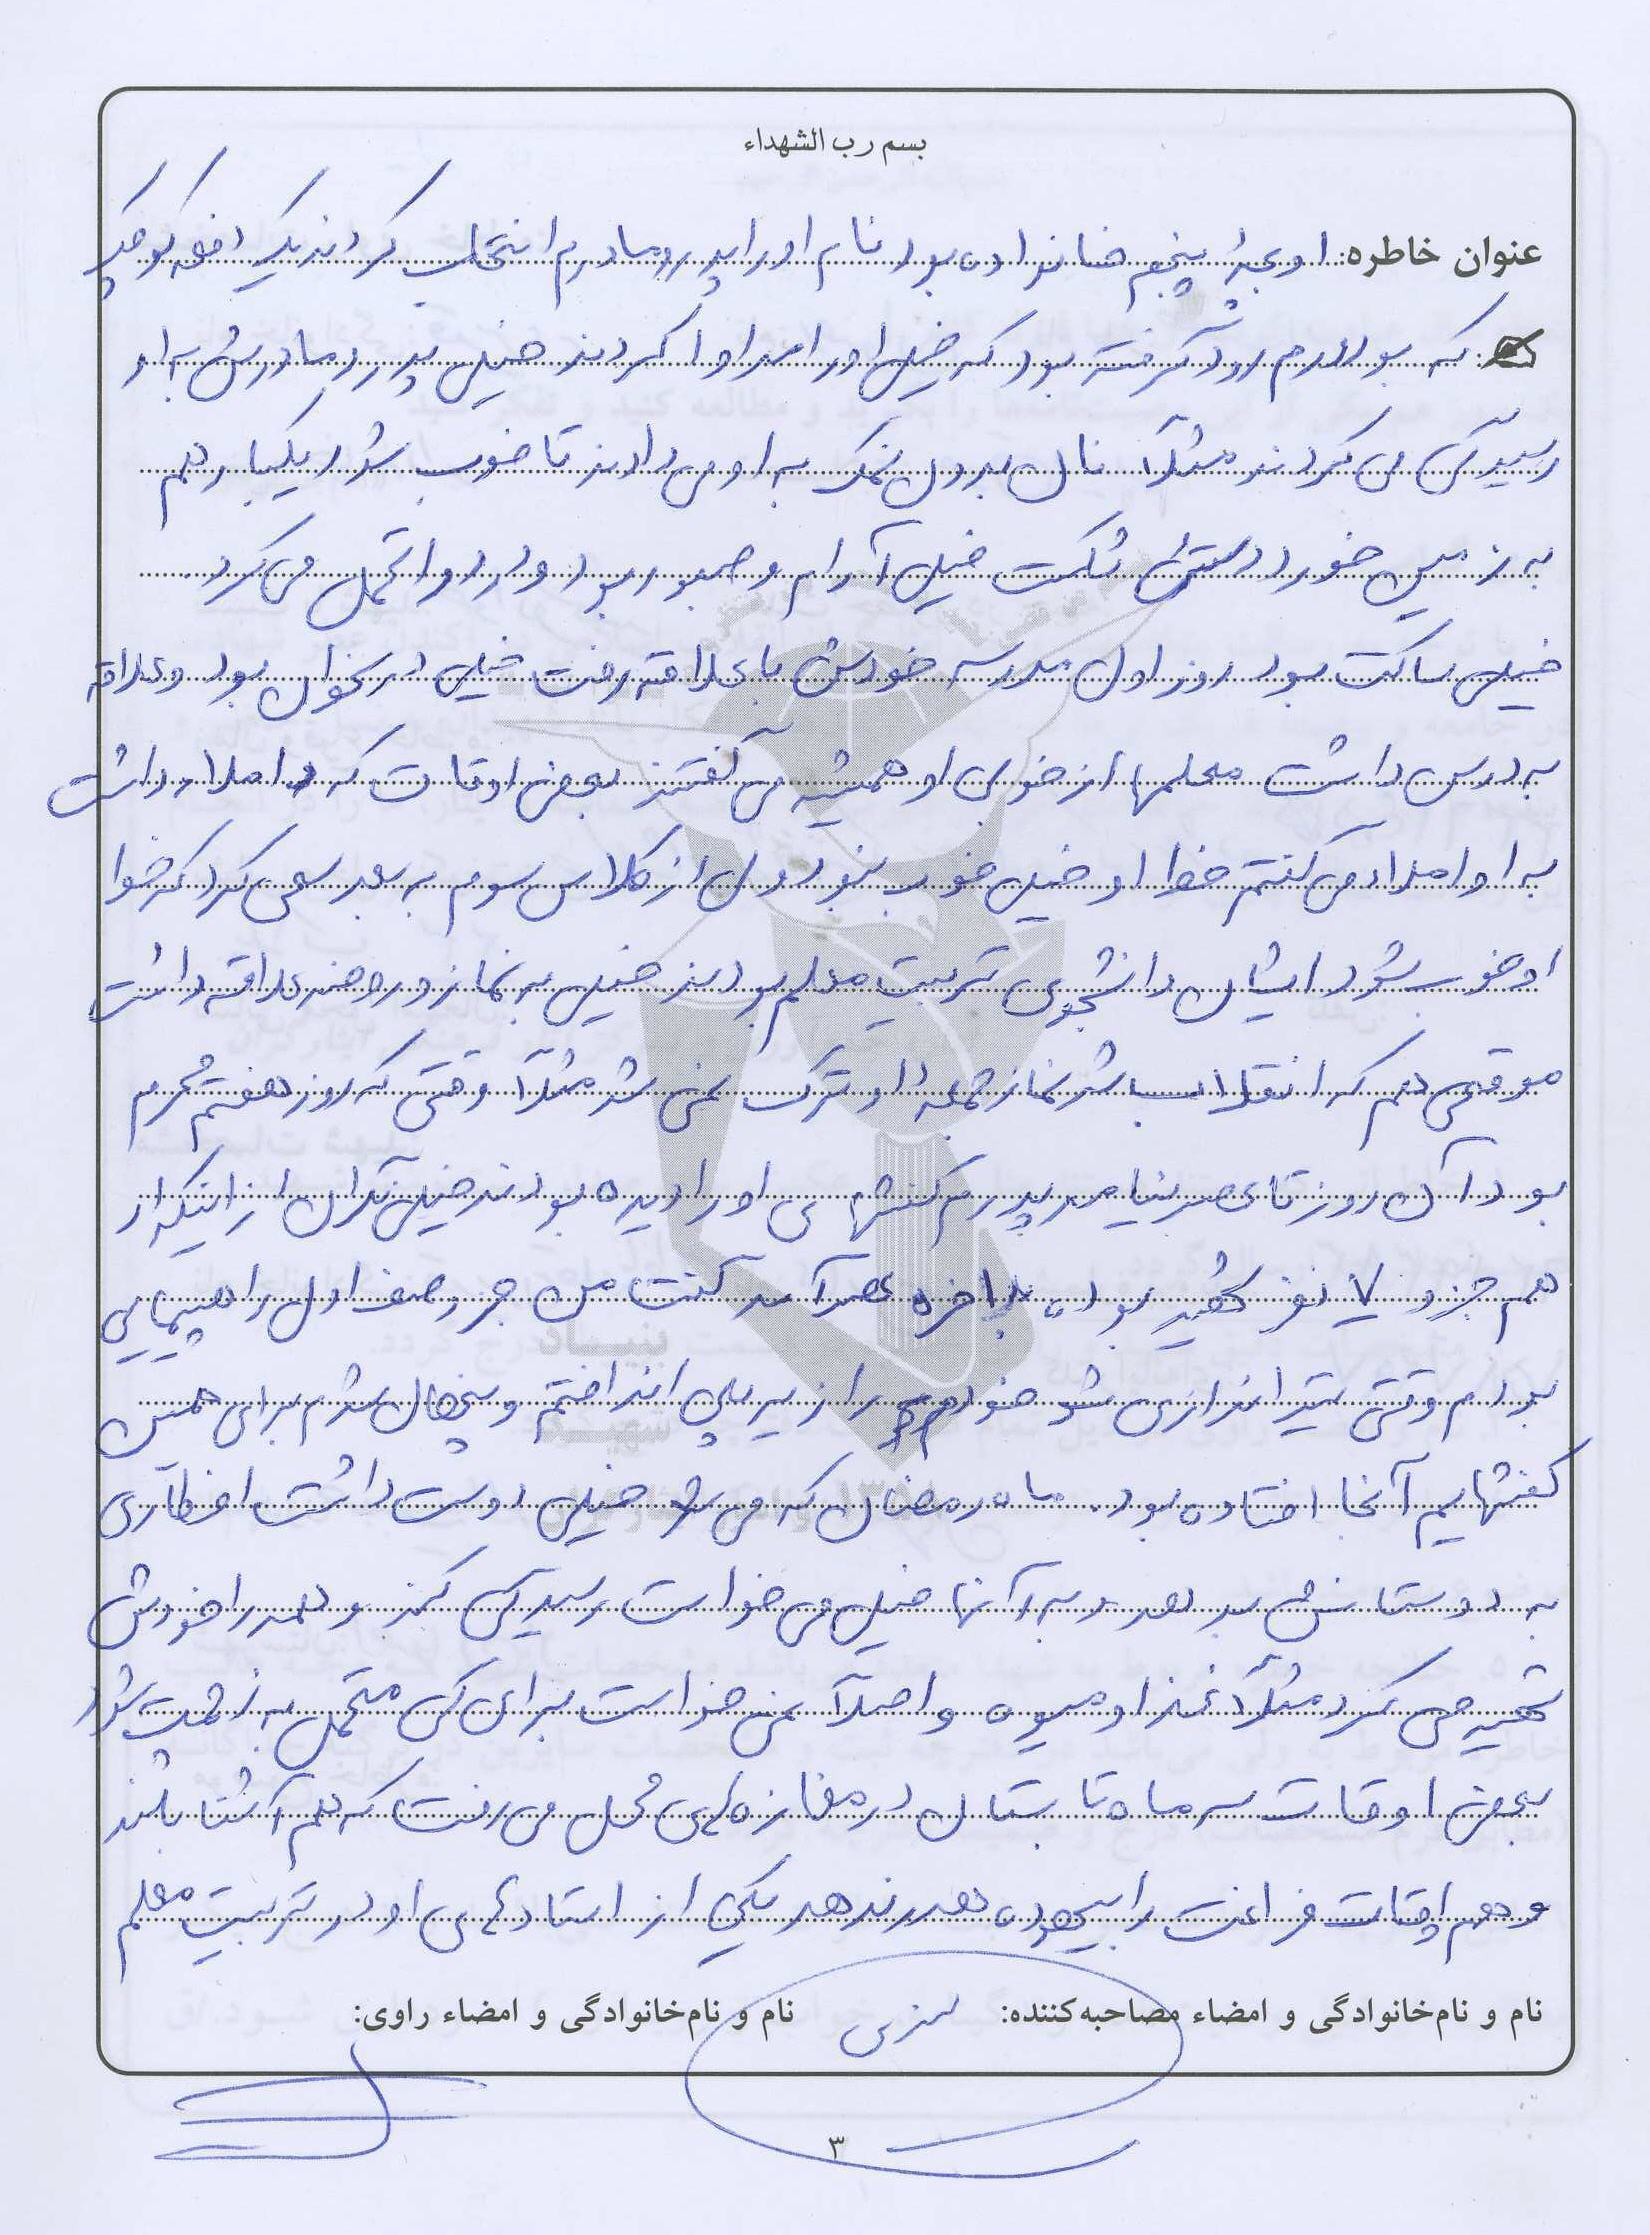 بسم رب الشهداء
عنوان خاطره: او بچهٔ پنجم خانواده بود نام او را پدر و مادرم انتخاب کردند یک دفعه کوچک
که بود ورم روده گرفته بود که خیلی او را مداوا کردند خیلی پدر و مادرش به او
رسیدگی می کردند مثلاً نان بدون نمک به او می دادند تا خوب شود یکبار هم
به زمین خورد دستش شکست خیلی آرام و صبور بود و درد را تحمل می کرد.
خیلی ساکت بود روز اول مدرسه خودش با علاقه رفت خیلی درسخوان بود و علاقه
به درس داشت معلمها از خوبی او همیشه می گفتند بعضی اوقات که املاء داشت
به او املاء می گفتم خط او خیلی خوب نبود ولی از کلاس سوم به بعد سعی کرد که خط
او خوب شود ایشان دانشجوی تربیت معلم بودند خیلی به نماز و روضه علاقه داشت
موقعی هم که انقلاب شد نماز جمعه او ترک نمی شد مثلاً وقتی که روز هفتم محرم
بود آن روز تا عصر نیامد پدرم کفشهای او را دیده بودند خیلی نگران از اینکه او
هم جزو ۷ نفر شهید بوده بلاخره عصر آمد گفت من جزو صف اول راهپیمایی
بودم وقتی تیراندازی شد خودم را زیر پل انداختم و پنهان شدم برای همین
کفشهایم آنجا افتاده بود. ماه رمضان که می شد خیلی دوست داشت افطاری
به دوستانش بدهد و به آنها خیلی می خواست رسیدگی کند و همه را خودش
تهیه می کرد مثلاً غذا و میوه و اصلاً نمی خواست برای کسی متحمل به زحمت شود
بعضی اوقات سه ماه تابستان در مغازه های محل می رفت که هم آشنا باشند
و هم اوقات فراغت را بیهوده هدر ندهد یکی از استادهای او در تربیت معلم
نام و نام‌خانوادگی و امضاء مصاحبه‌کننده: نام و نام‌خانوادگی و امضاء راوی:
۳